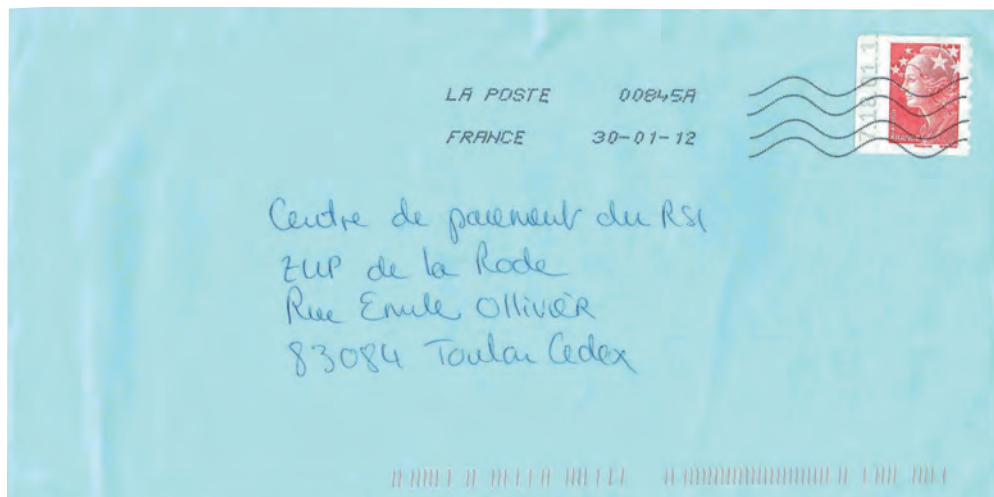 LA POSTE 00845A
FRANCE 30-01-12
Centre de paiement du RSI
ZUP de la Rode
Rue Emile Ollivier
83084 Toulon Cedex